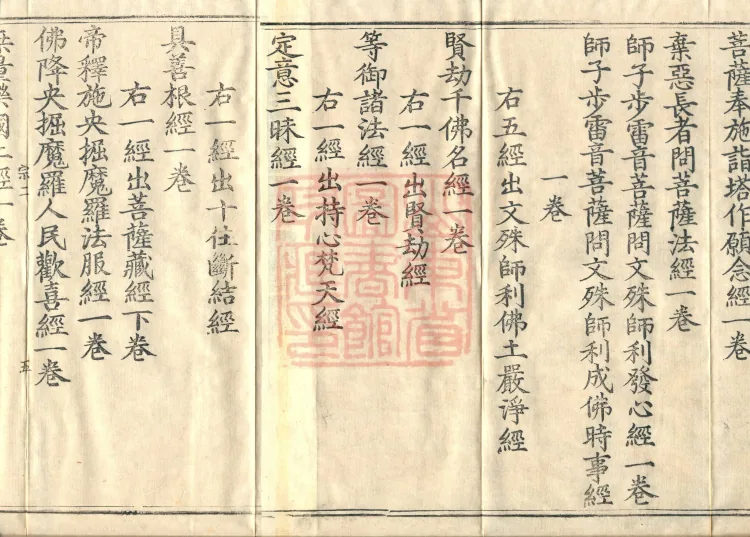 菩薩奉施詣塔作願念經一卷
棄惡長者問菩薩法經一卷
師子步雷音菩薩問文殊師利發心經一卷
師子步雷音菩薩問文殊師利成佛時事經
一卷
右五經出文殊師利佛土嚴淨經
賢劫千佛名經一卷
右一經出賢劫經
等御諸法經一卷
右一經出持心梵天經
定意三昧經一卷
右一經出十住斷結經
具善根經一卷
右一經出菩薩藏經下卷
帝釋施央掘魔羅法服經一卷
佛降央掘魔羅人民歡喜經一卷
宗二 五
國土經一卷